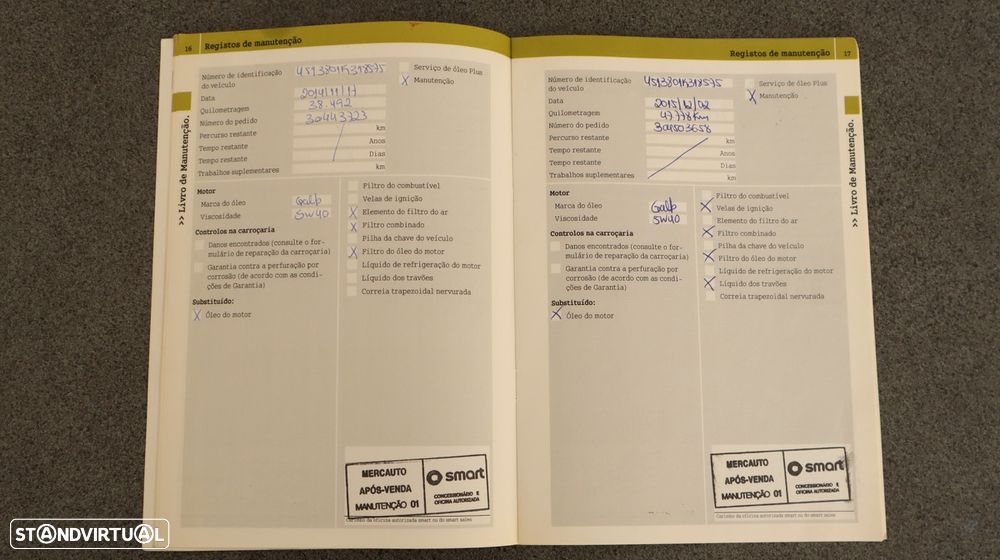 16 Registos de manutenção
>> Livro de Manutenção.
Número de identificação do veículo
Data 2014/11/17
Quilometragem 38.492
Número do pedido 30443723
Percurso restante km
Tempo restante Anos
Tempo restante Dias
Trabalhos suplementares km
Serviço de óleo Plus
X Manutenção
Motor
Marca do óleo Galp
Viscosidade 5W40
Controlos na carroçaria
Danos encontrados (consulte o for-
mulário de reparação da carroçaria)
Garantia contra a perfuração por
corrosão (de acordo com as condi-
ções de Garantia)
Substituído:
X Óleo do motor
Filtro do combustível
Velas de ignição
X Elemento do filtro do ar
X Filtro combinado
Pilha da chave do veículo
X Filtro do óleo do motor
Líquido de refrigeração do motor
Líquido dos travões
Correia trapezoidal nervurada
MERCAUTO
APÓS-VENDA
MANUTENÇÃO 01
smart
CONCESSIONÁRIO E
OFICINA AUTORIZADA
Carimbo da oficina autorizada smart ou do smart sales
Registos de manutenção 17
>> Livro de Manutenção.
Número de identificação do veículo
Data 2015/12/02
Quilometragem 47778 km
Número do pedido 304503658
Percurso restante km
Tempo restante Anos
Tempo restante Dias
Trabalhos suplementares km
Serviço de óleo Plus
X Manutenção
Motor
Marca do óleo Galp
Viscosidade 5W40
Controlos na carroçaria
Danos encontrados (consulte o for-
mulário de reparação da carroçaria)
Garantia contra a perfuração por
corrosão (de acordo com as condi-
ções de Garantia)
Substituído:
X Óleo do motor
Filtro do combustível
X Velas de ignição
Elemento do filtro do ar
X Filtro combinado
Pilha da chave do veículo
X Filtro do óleo do motor
Líquido de refrigeração do motor
X Líquido dos travões
Correia trapezoidal nervurada
MERCAUTO
APÓS-VENDA
MANUTENÇÃO 01
smart
CONCESSIONÁRIO E
OFICINA AUTORIZADA
Carimbo da oficina autorizada smart ou do smart sales
STANDVIRTUAL